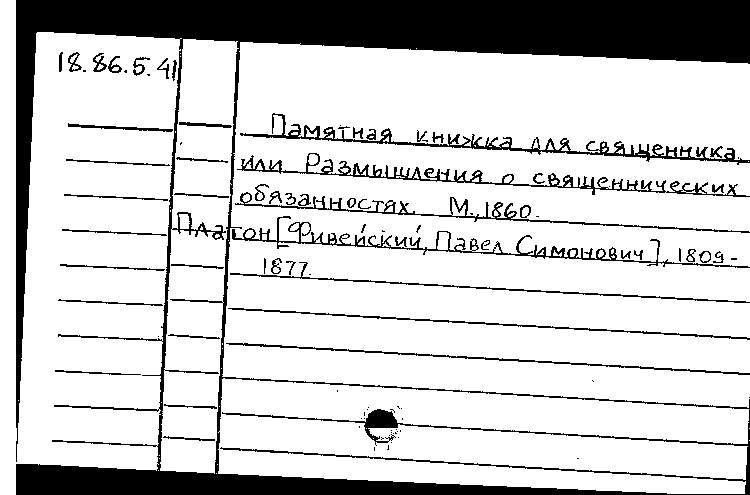 18.86.5.41
Памятная книжка для священника,
или Размышления о священнических
обязанностях. М., 1860.
Платон [Фивейский, Павел Симонович], 1809-
1877.